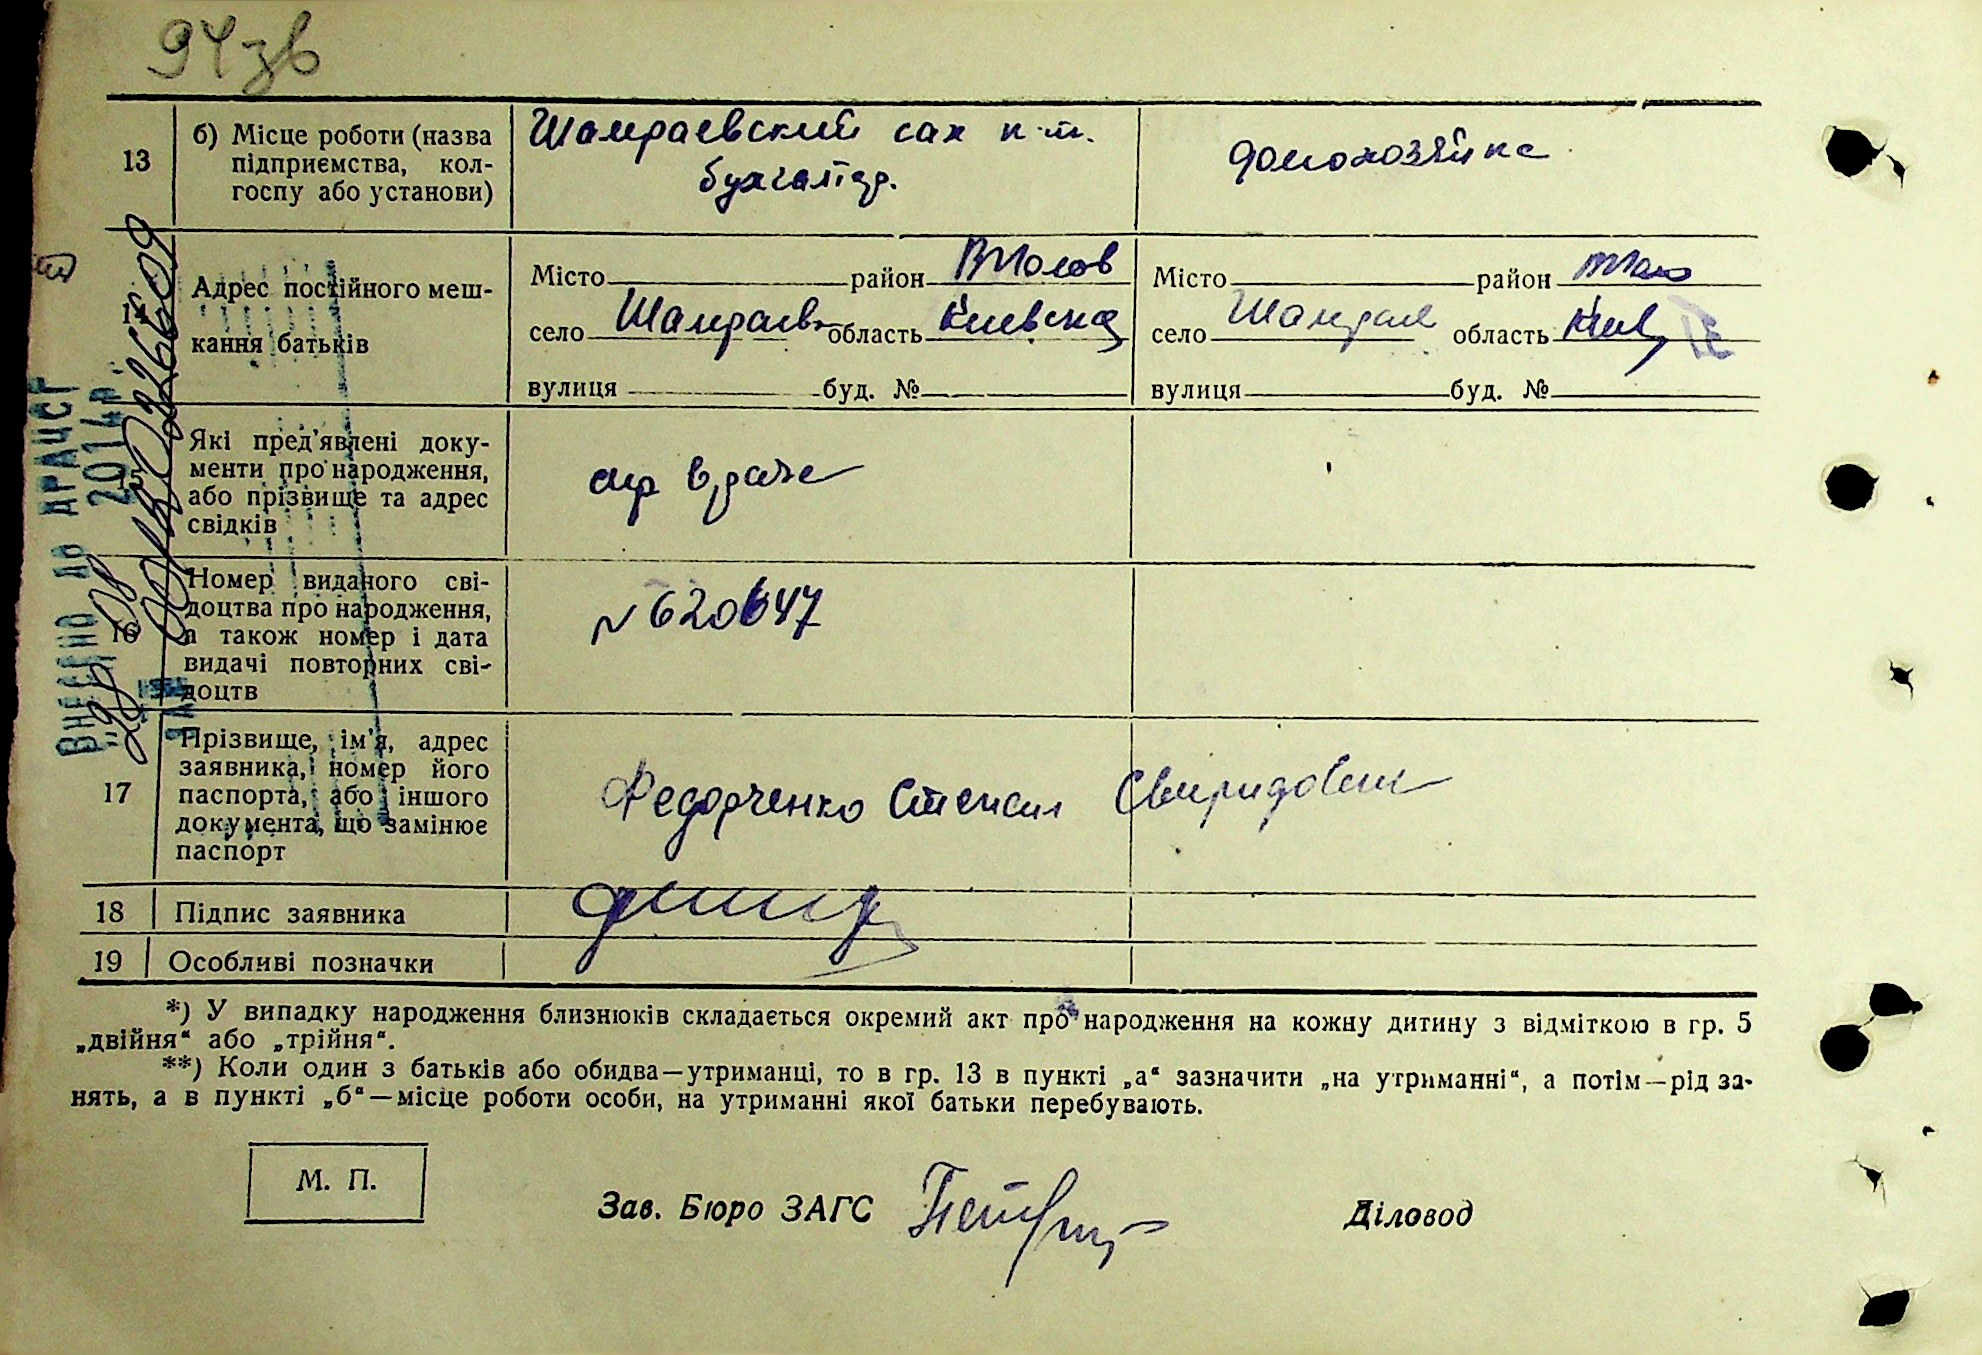 94зв
13
б) Місце роботи (назва
підприємства, кол-
госпу або установи)
Шамраевский сах к-т.
бухгалтер.
домохозяйка
14
Адрес постійного меш-
кання батьків
Місто район ВПолов
село Шамраевк область Киевска
вулиця буд. №
Місто район
село Шамрае область Киев
вулиця буд. №
15
Які пред'явлені доку-
менти про народження,
або прізвище та адрес
свідків
16
Номер виданого сві-
доцтва про народження,
а також номер і дата
видачі повторних сві-
доцтв
N 620647
17
Прізвище, ім'я, адрес
заявника, номер його
паспорта, або іншого
документа, що замінює
паспорт
Федорченко Степан Свиридович
18 Підпис заявника
19 Особливі позначки
*) У випадку народження близнюків складається окремий акт про народження на кожну дитину з відміткою в гр. 5
„двійня“ або „трійня“.
**) Коли один з батьків або обидва—утриманці, то в гр. 13 в пункті „а“ зазначити „на утриманні“, а потім—рід за-
нять, а в пункті „б“—місце роботи особи, на утриманні якої батьки перебувають.
М. П.
Зав. Бюро ЗАГС
Діловод
Внесено до ДРАЦСГ
„28 08 2014р.